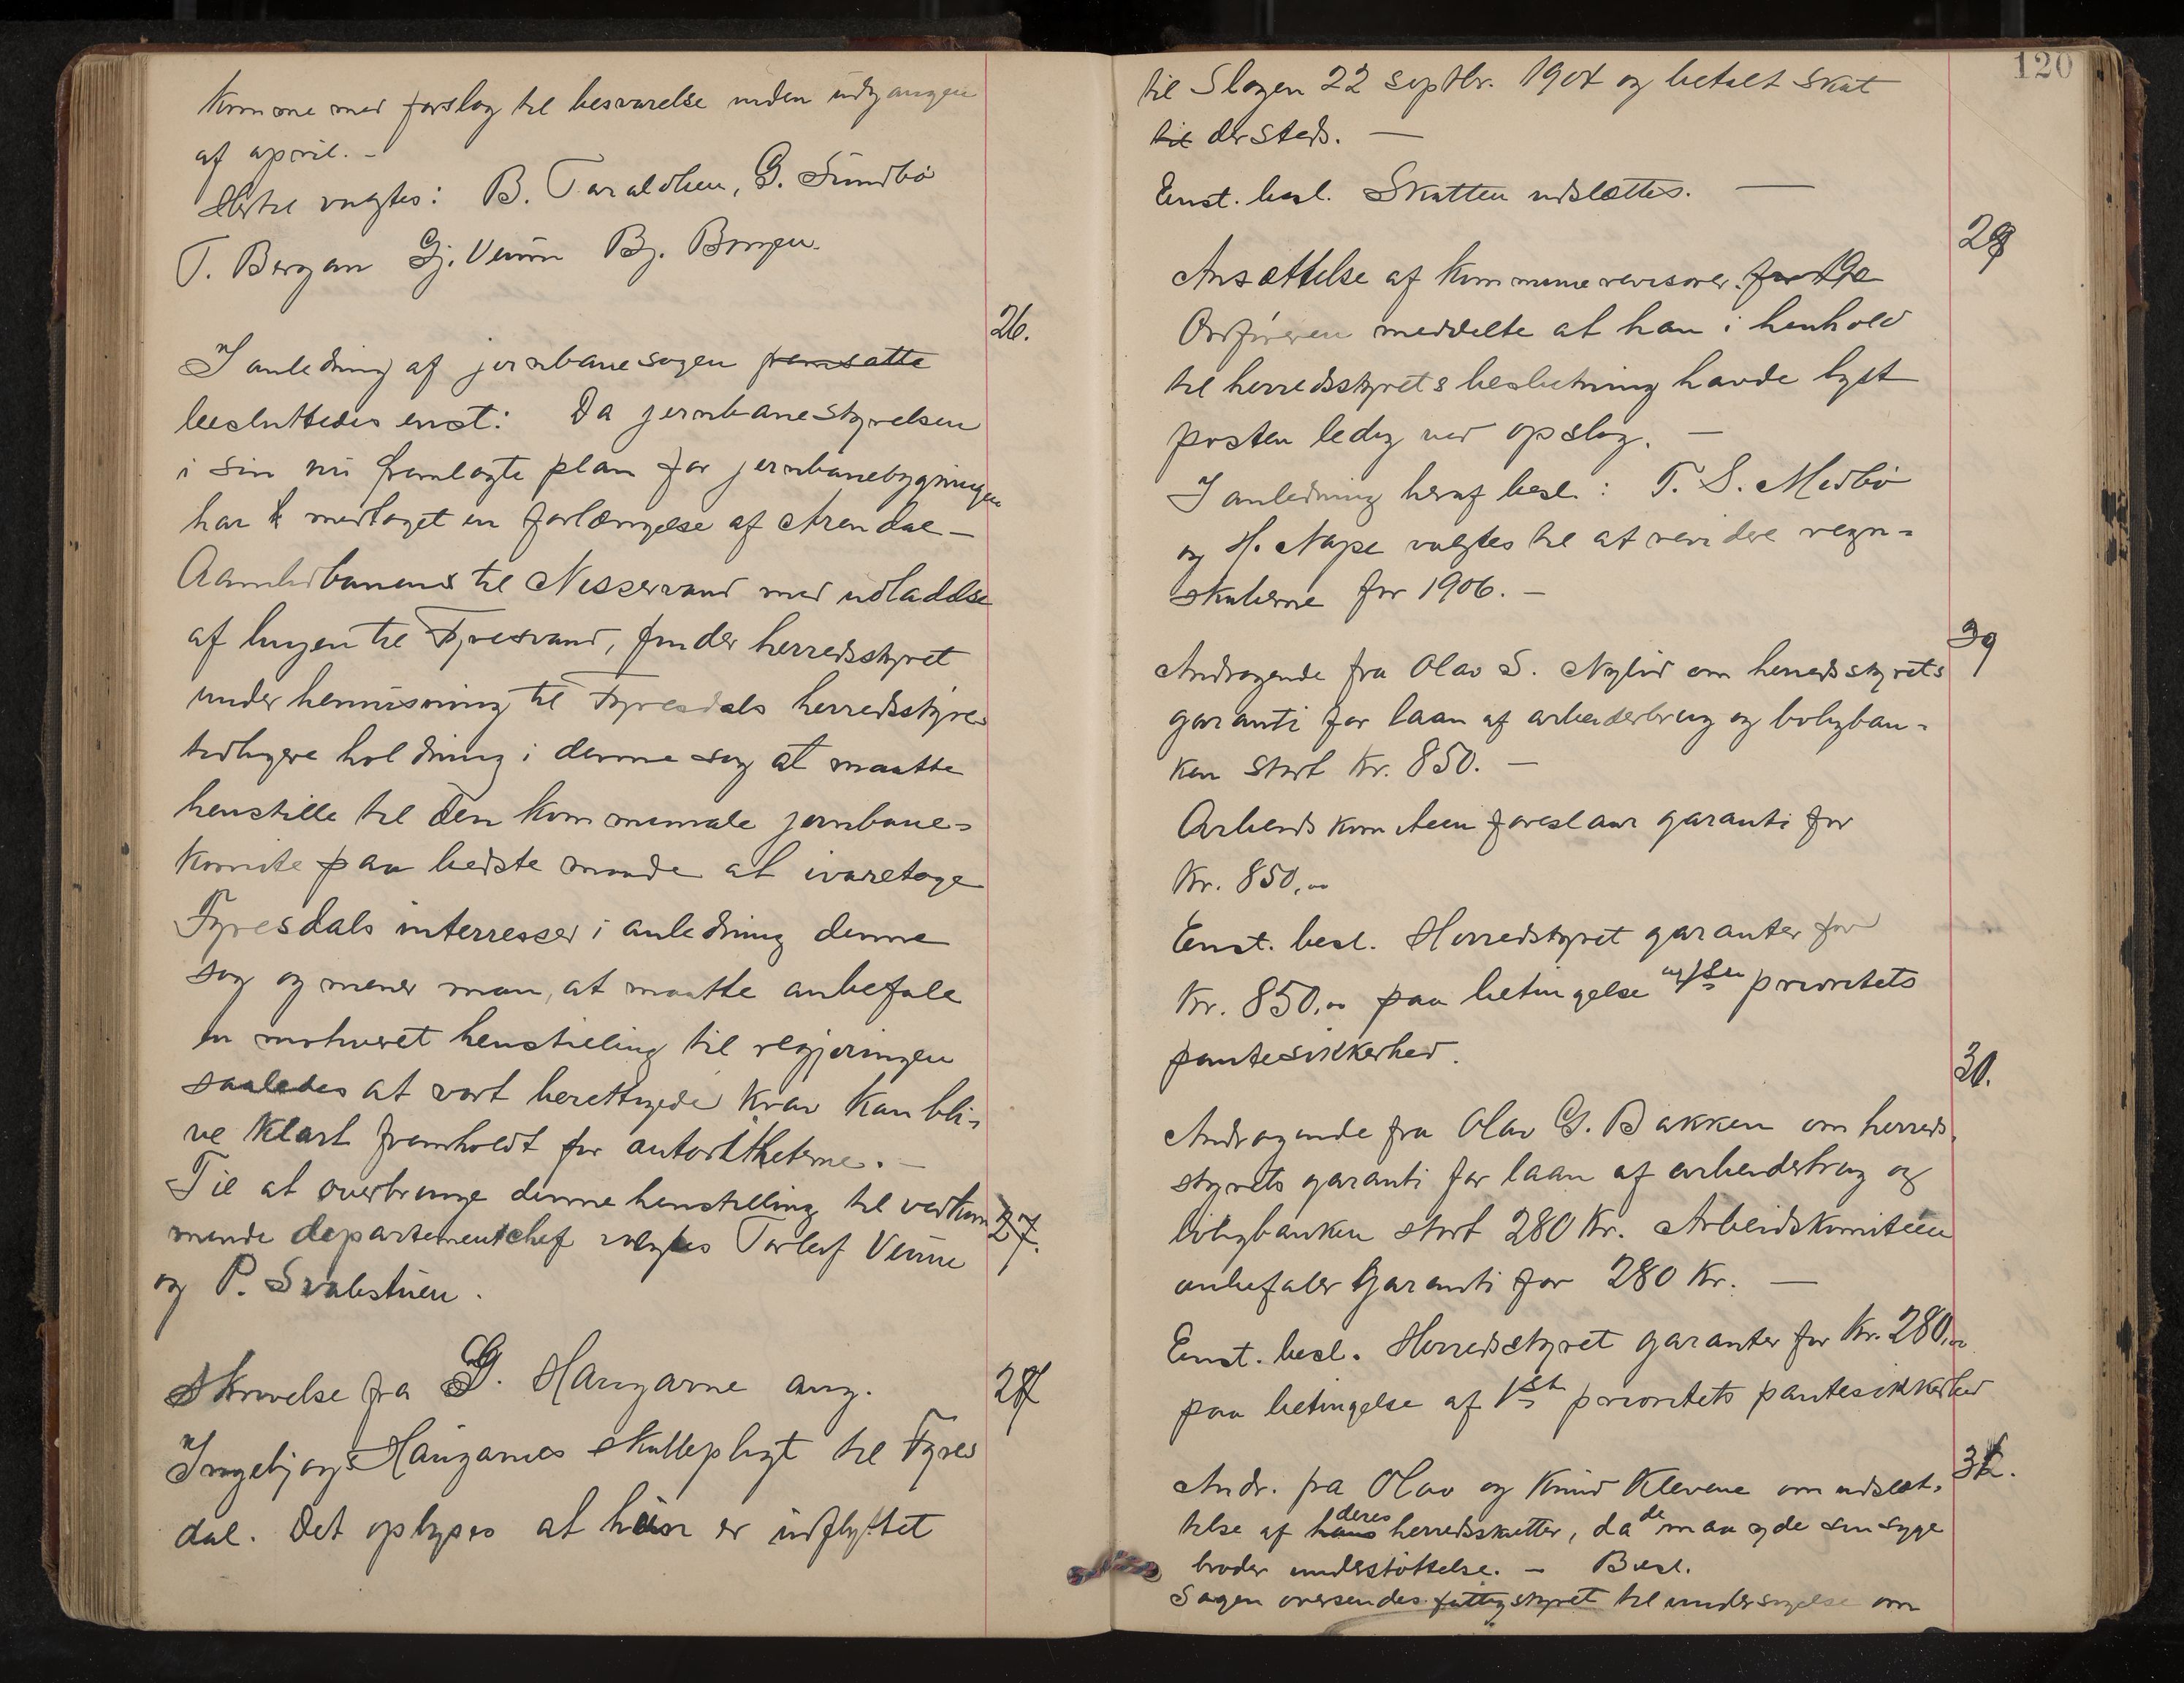 komme med forslag til besvarelse inden udgangen
af april. –
Hertil valgtes: B. Taraldlien, G. Sundbö
T. Bergan Gj. Veum Bj. Borgen.
26.
I anledning af jernbanesagen fremsatte
besluttedes enst: Da jernbanestyrelsen
i sin nu fremlagte plan for jernbanebygningen
har medtaget en forlængelse af Arendal –
Aamlibanens til Nisservand med udladelse
af linjen til Fyresvand, finder herredsstyret
under henvisning til Fyresdals herredsstyres
tidligere holdning i denne sag at maatte
henstille til den kommunale jernbane-
komite paa bedste maade at ivaretage
Fyresdals interresser i anledning denne
sag og mener man, at maatte anbefale
en motiveret henstilling til regjeringen
saaledes at vort berettigede krav kan bli-
ve klart fremholdt for autoritheterne. –
Til at overbringe denne henstilling til vedkom 27.
mende departementchef valgtes Torleif Veum
og P. Svalestuen.
Skrivelse fra G. Haugarne ang. 28
Ingebjorg Haugarnes skattepligt til Fyres
dal. Det oplyses at hun er indflyttet
120
til Slagen 22 septbr. 1904 og betalt skat
til dersteds. –
Enst. besl. Skatten udslettes. –
29
Ansættelse af kommunerevisorer. for 190
Ordföreren meddelte at han i henhold
til herredsstyrets beslutning havde lyst
posten ledig ved opslag. –
I anledning heraf besl: T. S. Medbö
og H. Nape valgtes til at revidere regn-
skaberne for 1906. –
30
Andragende fra Olav S. Nylid om herredsstyrets
garanti for laan af arbeiderbrug og boligban-
ken stort Kr. 850. –
Arbeidskomiteen foreslaar garanti for
Kr. 850,00
Enst. besl. Herredstyret garanter for
Kr. 850,00 paa betingelse af 1ste prioritets
pantesikkerhed.
31.
Andragende fra Olav G. Bakken om herreds-
styrets garanti for laan af arbeiderbrug og
boligbanken stort 280 Kr. Arbeidskomiteen
anbefaler Garanti for 280 Kr. –
Enst. besl. Herredsstyret garanter for Kr. 280,00
paa betingelse af 1ste prioritets pantesikkerhed
32.
Andr. fra Olav og Knud Klevene om udslet-
telse af hans deres herredsskatter, da de maa yde sin syge
broder understöttelse. – Besl.
Sagen oversendes fattigstyret til undersøgelse om